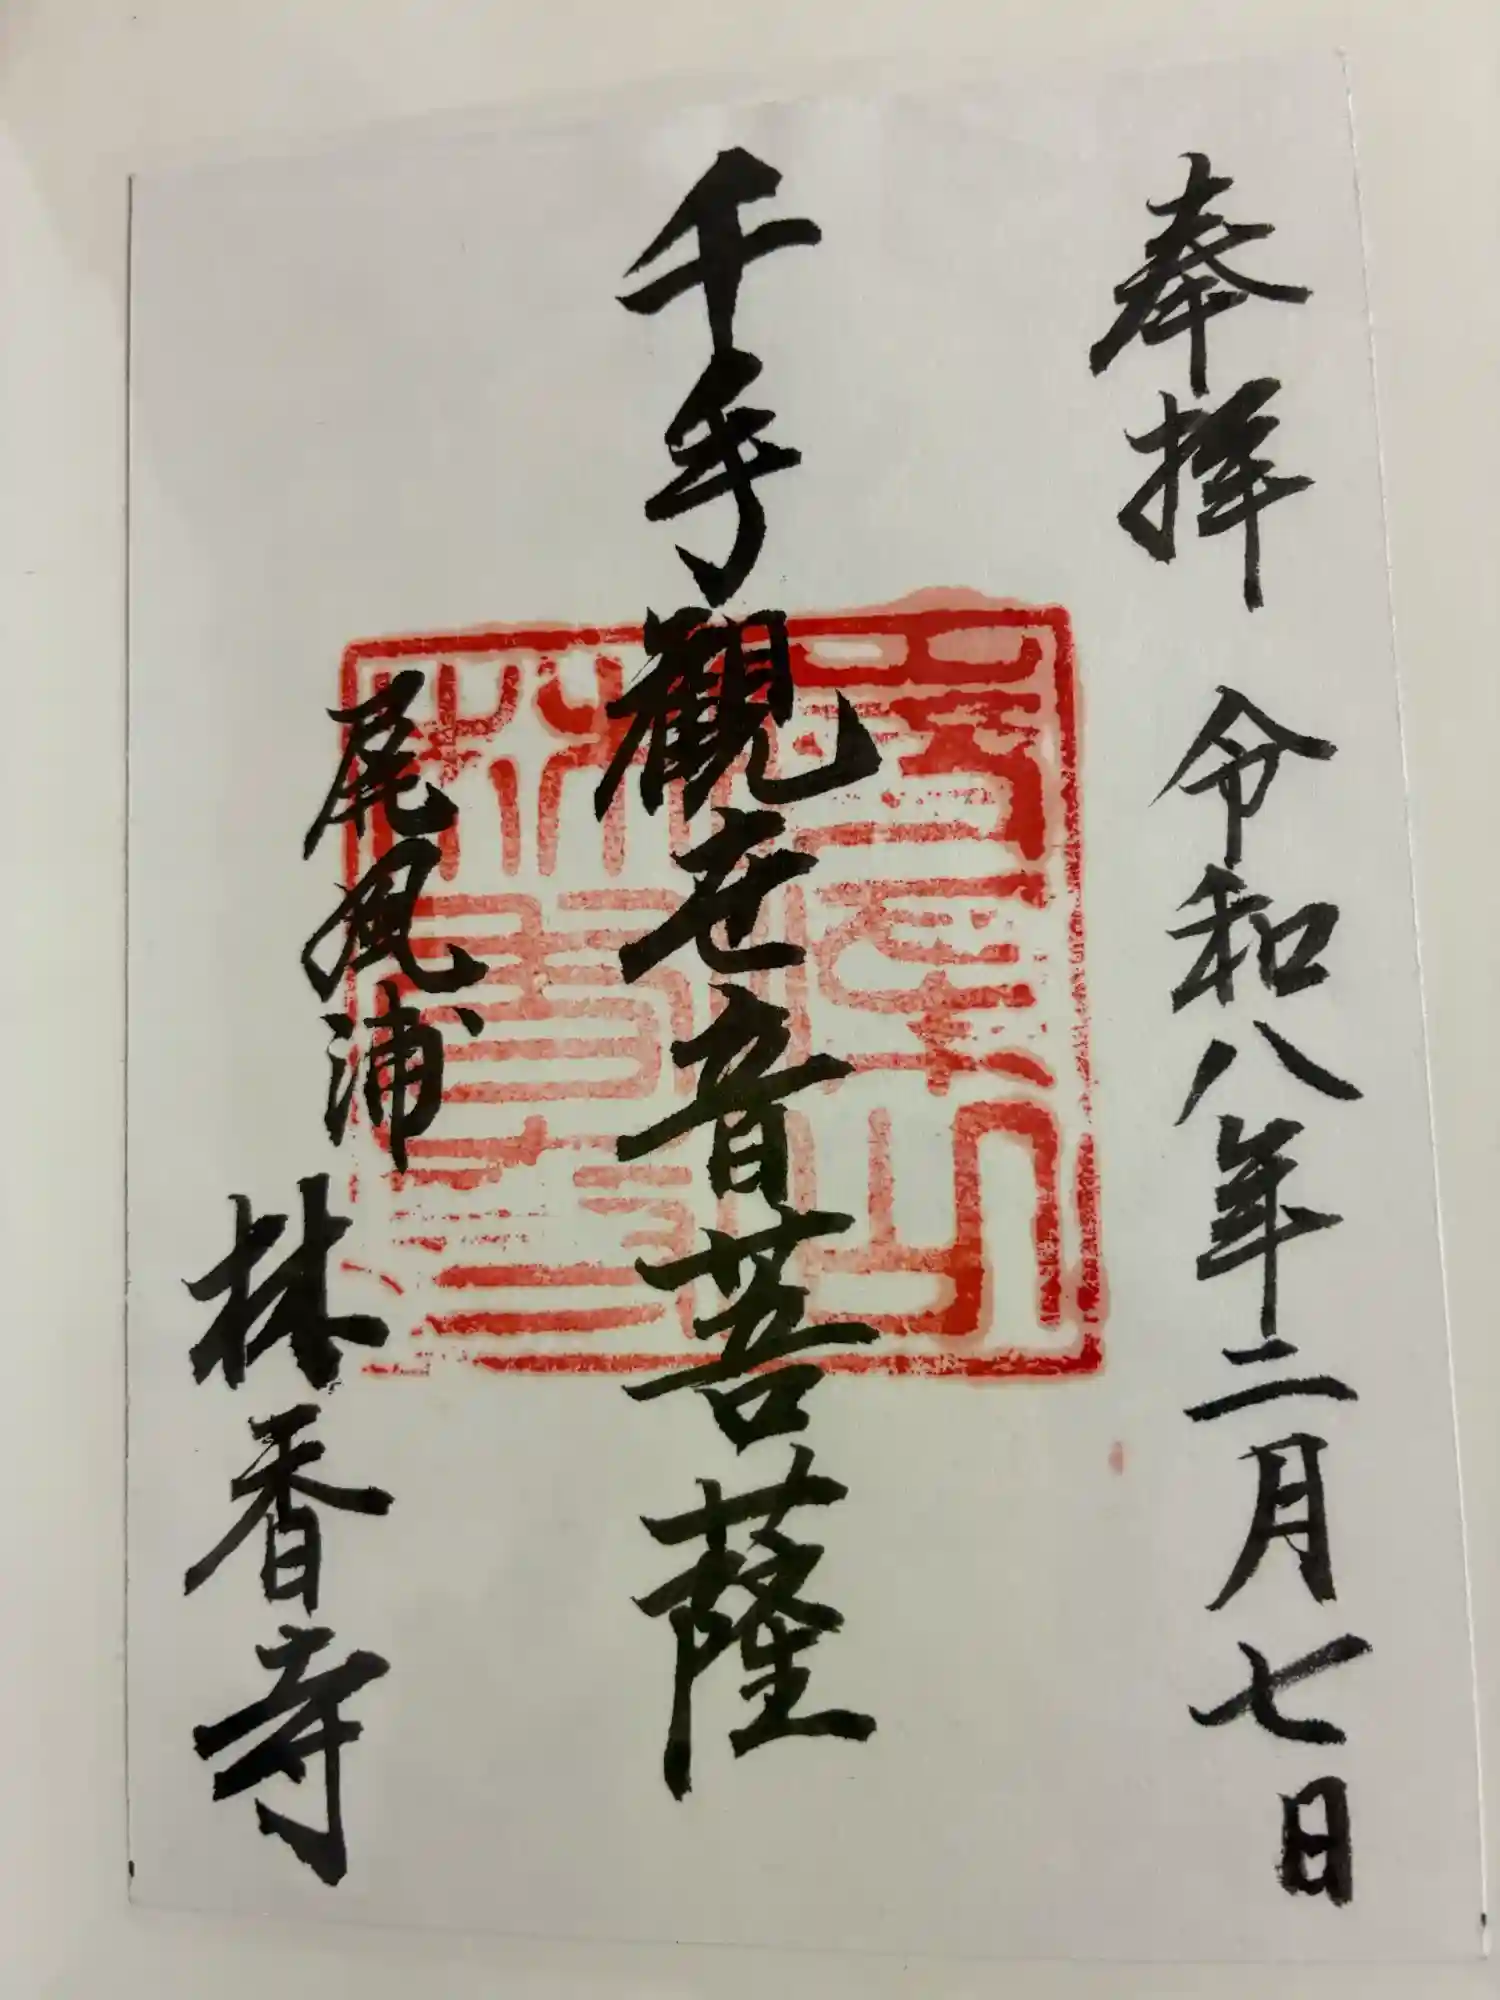 奉拝 令和八年二月七日
千手観世音菩薩
尾風浦
林香寺